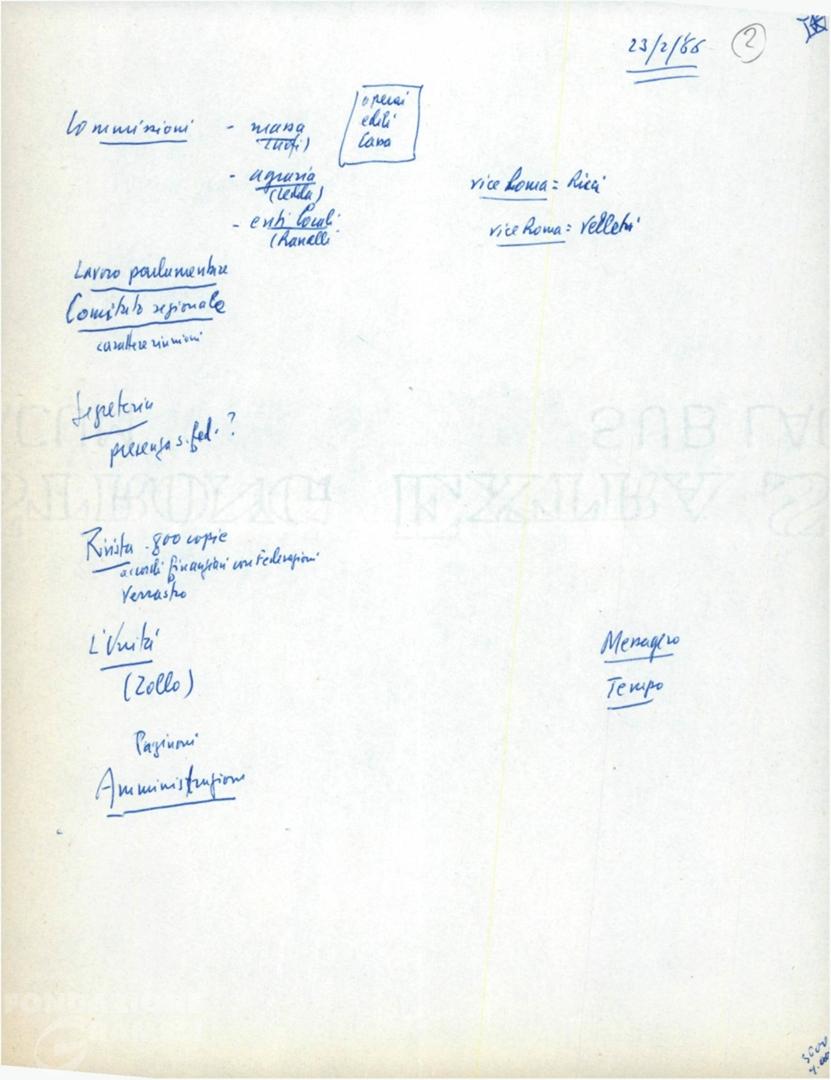 23/2/66 2
Commissioni - massa
operai
edili
Casa
- agraria
(Ledda)
- enti locali
(Ranalli
vice Roma = Ricci
vice Roma = Velletri
Lavoro parlamentare
Comitato regionale
carattere riunioni
Segreteria
presenza s. fed. ?
Rivista - 800 copie
accordi finanziari con Federazioni
Verrastro
L'Unità
(Zollo)
Messaggero
Tempo
Paginoni
Amministrazione
FONDAZIONE